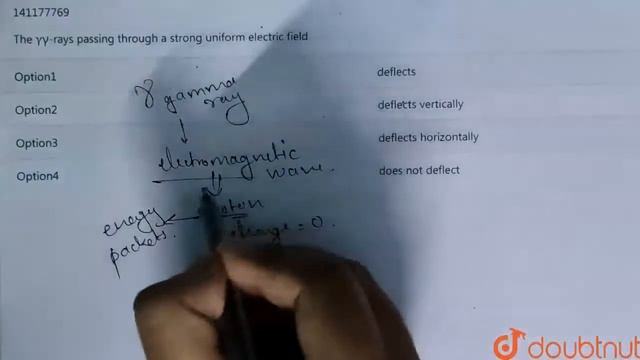 141177769
The γγ-rays passing through a strong uniform electric field
Option1 deflects
Option2 deflects vertically
Option3 deflects horizontally
Option4 does not deflect
γ gamma
ray
electromagnetic
wave.
energy
packets.
charge = 0.
doubtnut